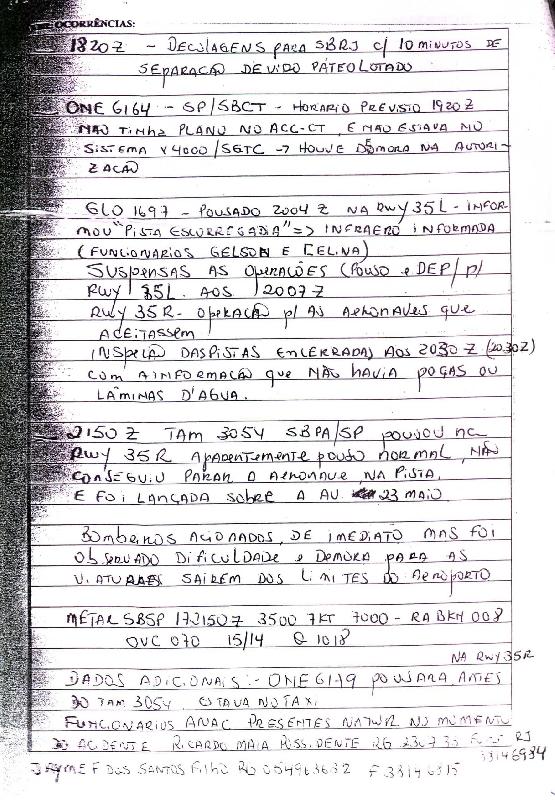 OCORRÊNCIAS:
1820Z - DECOLAGENS PARA SBRJ c/ 10 minutos DE
SEPARAÇÃO DEVIDO PÁTEO LOTADO
ONE 6164 - SP/SBCT - HORARIO PREVISTO 1920Z
NÃO TINHA PLANO NO ACC-CT, E NÃO ESTAVA NO
SISTEMA X4000/SGTC -> HOUVE DEMORA NA AUTORI-
ZAÇÃO
GLO 1697 - POUSADO 2004Z NA RWY 35L - INFOR-
MOU "PISTA ESCORREGADIA" => INFRAERO INFORMADA
(FUNCIONARIOS GELSON E CELINA)
SUSPENSAS AS OPERAÇÕES (POUSO e DEP/ p/
RWY 35L. AOS 2007Z
RWY 35R - OPERAÇÃO p/ AS AERONAVES QUE
ACEITASSEM
INSPEÇÃO DAS PISTAS ENCERRADAS AOS 2030Z (20:30Z)
COM A INFORMAÇÃO que NÃO HAVIA POÇAS OU
LÂMINAS D'AGUA.
2150Z TAM 3054 SBPA/SP POUSOU na
RWY 35R APARENTEMENTE POUSO NORMAL, NÃO
CONSEGUIU PARAR A AERONAVE NA PISTA,
E FOI LANÇADA SOBRE A AV. 23 MAIO
BOMBEIROS ACIONADOS, DE IMEDIATO MAS FOI
OBSERVADO DIFICULDADE e DEMORA PARA AS
VIATURAS SAIREM DOS LIMITES DO AEROPORTO
METAR SBSP 172150Z 3500 7KT 7000 - RA BKN 008
OVC 070 15/14 Q 1018
NA RWY 35R
DADOS ADICIONAIS: - ONE 6179 POUSARA ANTES
DO TAM 3054. ESTAVA NO TAXI.
FUNCIONARIOS ANAC PRESENTES NA TWR NO MOMENTO
DO ACIDENTE RICARDO MAIA RG 230730 RJ
33146984
JAYME F DOS SANTOS FILHO RG 004963632 F 33146815